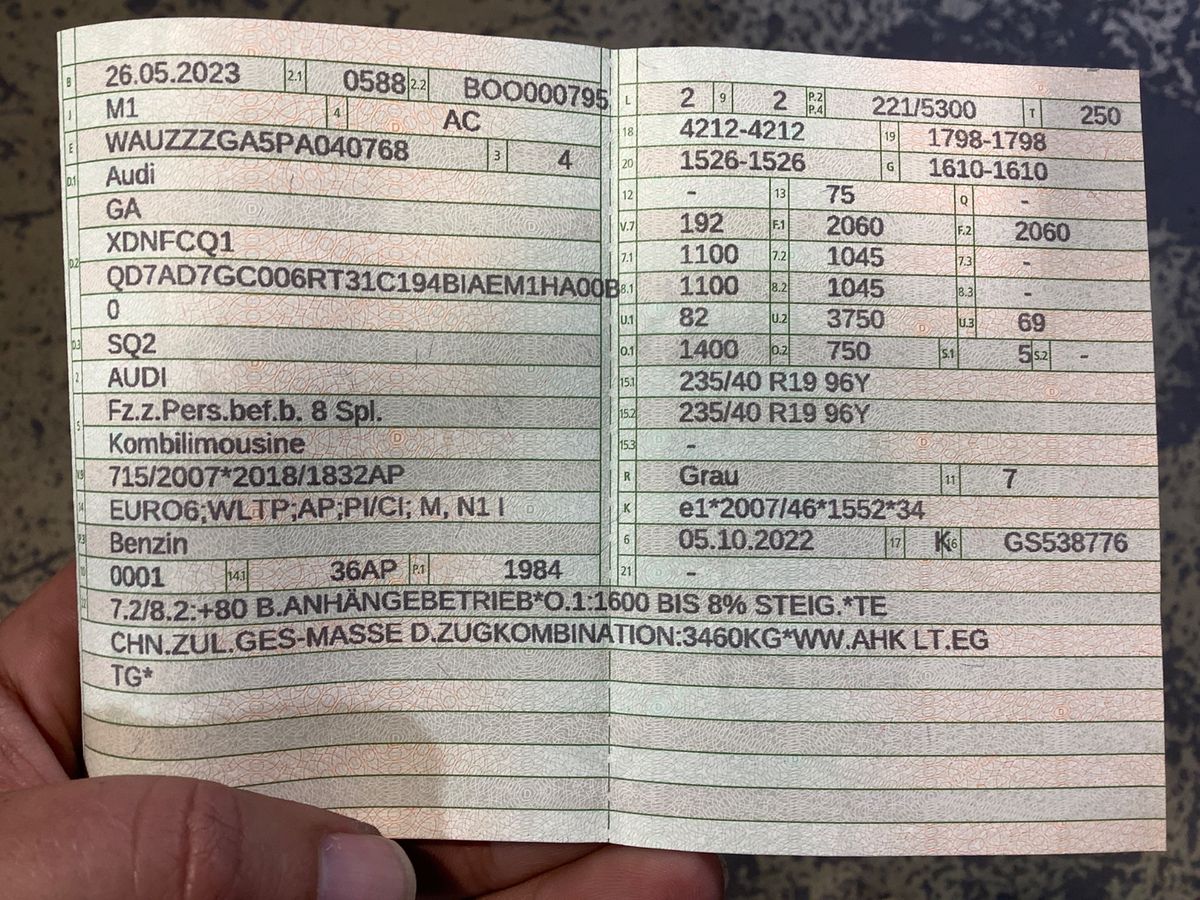 B 26.05.2023 2.1 0588 2.2 BOO000795
J M1 4 AC
E WAUZZZGA5PA040768 3 4
D.1 Audi
GA
D.2 XDNFCQ1
QD7AD7GC006RT31C194BIAEM1HA00B
0
D.3 SQ2
2 AUDI
5 Fz.z.Pers.bef.b. 8 Spl.
Kombilimousine
V.9 715/2007*2018/1832AP
14 EURO6;WLTP;AP;PI/CI; M, N1 I
P.3 Benzin
10 0001 14.1 36AP P.1 1984
L 2 9 2 P.2 P.4 221/5300 T 250
18 4212-4212 19 1798-1798
20 1526-1526 G 1610-1610
12 - 13 75 Q -
V.7 192 F.1 2060 F.2 2060
7.1 1100 7.2 1045 7.3 -
8.1 1100 8.2 1045 8.3 -
U.1 82 U.2 3750 U.3 69
O.1 1400 O.2 750 S.1 5 S.2 -
15.1 235/40 R19 96Y
15.2 235/40 R19 96Y
15.3 -
R Grau 11 7
K e1*2007/46*1552*34
6 05.10.2022 17 K 16 GS538776
21 -
22 7.2/8.2:+80 B.ANHÄNGEBETRIEB*O.1:1600 BIS 8% STEIG.*TE
CHN.ZUL.GES-MASSE D.ZUGKOMBINATION:3460KG*WW.AHK LT.EG
TG*